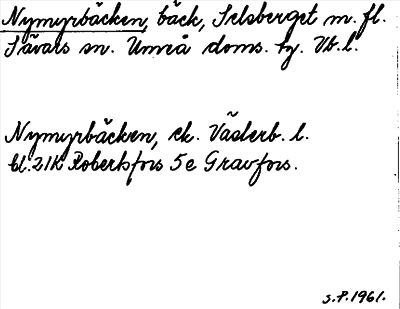 Nymyrbäcken, bäck, Selsberget m. fl.
Sävars sn. Umeå doms. tg. Vb. l.
Nymyrbäcken, ek. Västerb. l.
bl. 21K Robertsfors 5e Gravfors.
S.P. 1961.